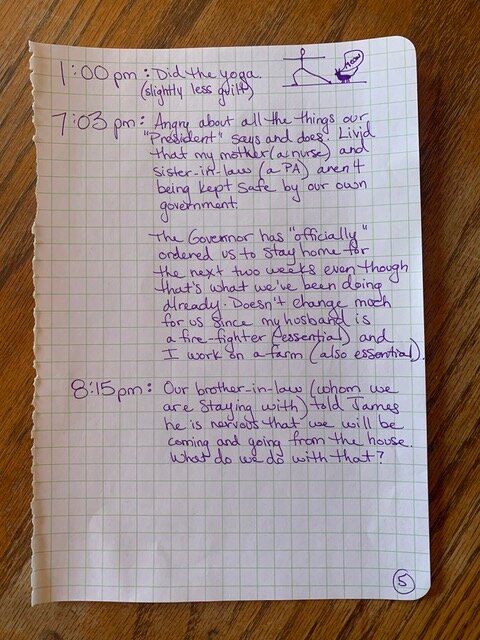 1:00 pm: Did the yoga.
(slightly less guilt)
meow
7:03 pm: Angry about all the things our
"President" says and does. Livid
that my mother (a nurse) and
sister-in-law (a PA) aren't
being kept safe by our own
government.
The Governor has "officially"
ordered us to stay home for
the next two weeks even though
that's what we've been doing
already. Doesn't change much
for us since my husband is
a fire-fighter (essential) and
I work on a farm (also essential).
8:15pm: Our brother-in-law (whom we
are staying with) told James
he is nervous that we will be
coming and going from the house.
What do we do with that?
5